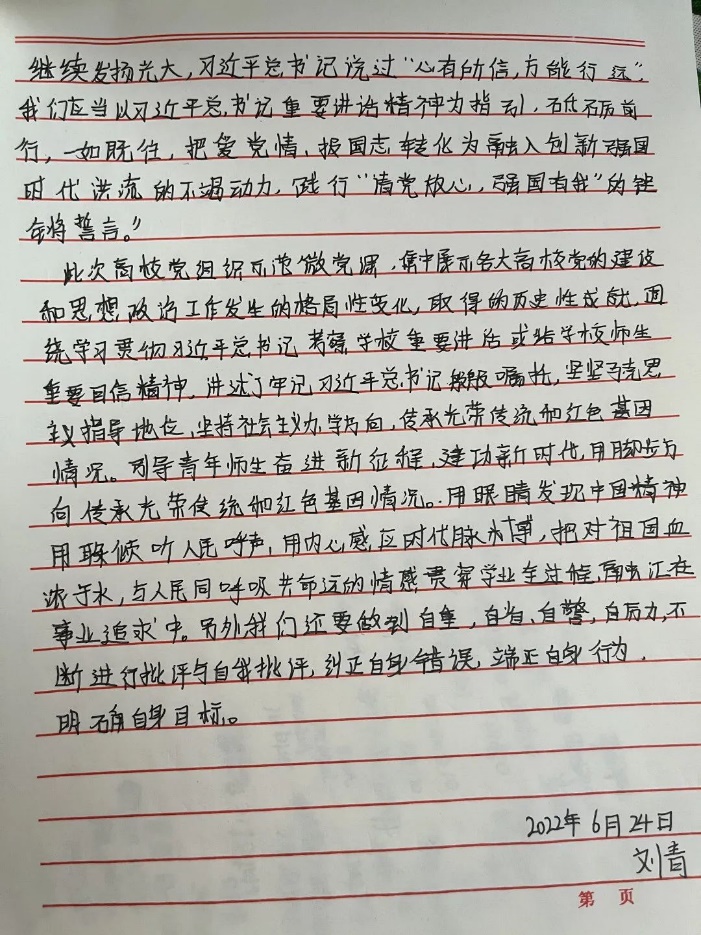 继续发扬光大,习近平总书记说过“心有所信,方能行远”.
我们应当以习近平总书记重要讲话精神为指引,砥砺前
行,一如既往,把爱党情、报国志转化为融入创新强国
时代洪流的不竭动力,践行“请党放心,强国有我”的铿
锵誓言。”
此次高校党组织示范微党课,集中展示各大高校党的建设
和思想政治工作发生的格局性变化,取得的历史性成就,围
绕学习贯彻习近平总书记考察学校重要讲话或给学校师生
重要回信精神,讲述了牢记习近平总书记殷殷嘱托,坚持马克思
主义指导地位,坚持社会主义办学方向,传承光荣传统和红色基因
情况。引导青年师生奋进新征程,建功新时代,用脚步方
向传承光荣传统和红色基因情况。.用眼睛发现中国精神
用耳倾听人民呼声,用内心感应时代脉搏,把对祖国血
浓于水,与人民同呼吸共命运的情感贯穿学业全过程,融汇在
事业追求中。另外我们还要做到自重,自省、自警,自励,不
断进行批评与自我批评,纠正自身错误,端正自身行为,
明确自身目标。
2022年6月24日
刘青
第 页